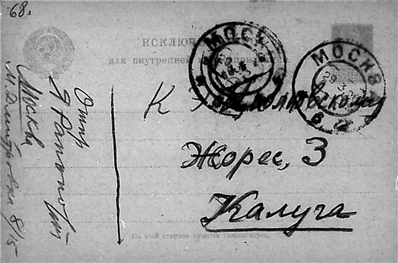 68.
ИСКЛЮЧ
для внутренней
МОСКВА
МОСКВА
К. Э. Циолковскому
Жорес, 3
Калуга
Отпр.
Москва
М. Дмитровка 8/15
На этой стороне пишется только адрес.